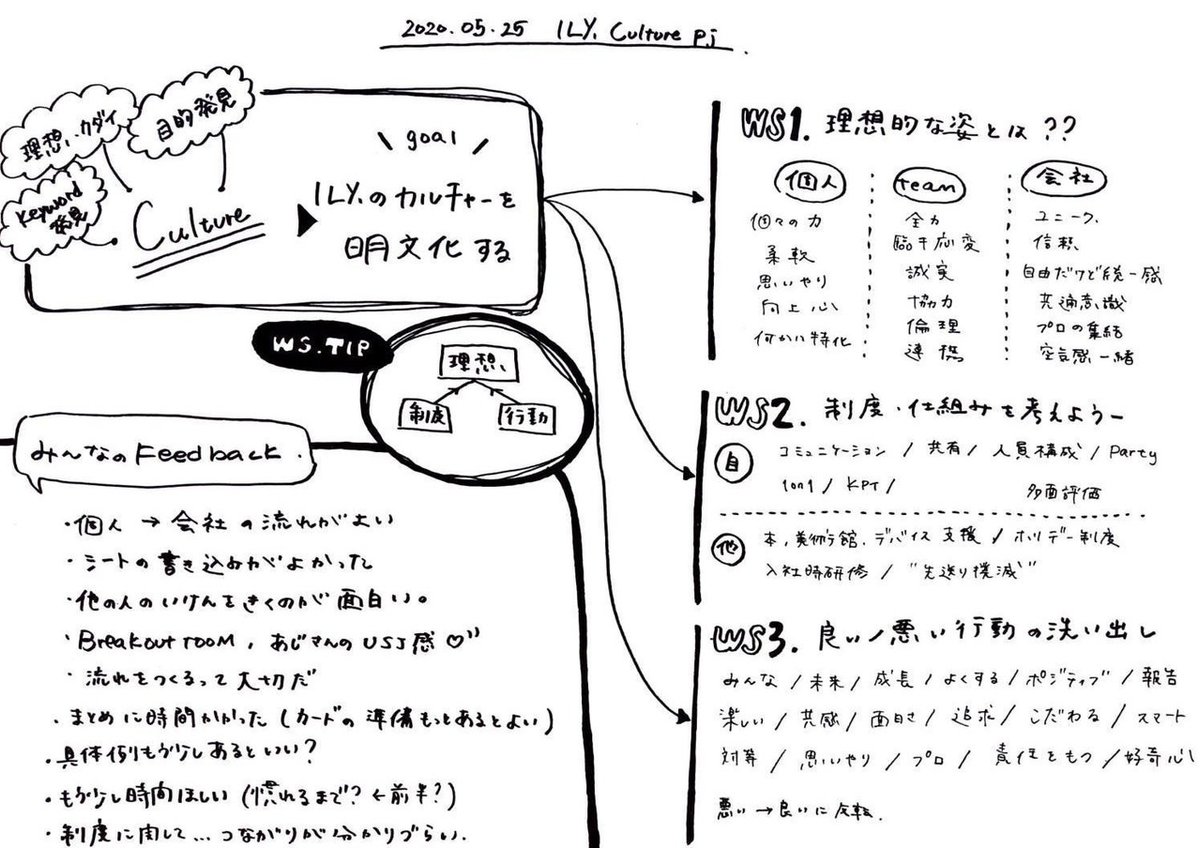 2020.05.25 ILY, Culture pj
理想、カダイ
目的発見
Keyword
発見
Culture
goal
ILY,のカルチャーを
明文化する
WS.TIP
理想
制度
行動
みんなのFeedback.
・個人 → 会社 の流れがよい
・シートの書き込みがよかった
・他の人のいけんをきくのが面白い。
・Breakout room, あじさんのUSJ感♡"
・流れをつくるって大切だ
・まとめに時間かかった (カードの準備もっとあるとよい)
・具体例もう少しあるといい?
・もう少し時間ほしい (慣れるまで? ← 前半?)
・制度に関して... つながりが分かりづらい.
WS1. 理想的な姿とは??
個人
個々の力
柔軟
思いやり
向上心
何かに特化
team
全力
臨機応変
誠実
協力
倫理
連携
会社
ユニーク.
信頼
自由だけど統一感
共通意識
プロの集結
空気感一緒
WS2. 制度・仕組みを考えよう−
自
コミュニケーション / 共有 / 人員構成 / Party
1on1 / KPT / 多面評価
他
本, 美術館, デバイス 支援 / ホリデー制度
入社時研修 / "先送り撲滅"
WS3. 良い/悪い行動の洗い出し
みんな / 未来 / 成長 / よくする / ポジティブ / 報告
楽しい / 共感 / 面白さ / 追求 / こだわる / スマート
対等 / 思いやり / プロ / 責任をもつ / 好奇心
悪い → 良いに反転.